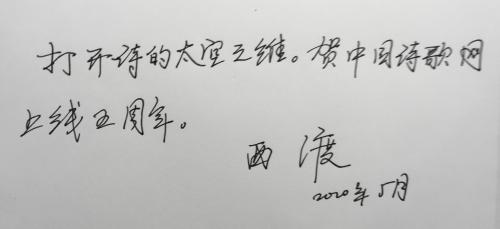 打开诗的太空之维。贺中国诗歌网
上线五周年。
西渡
2020年5月